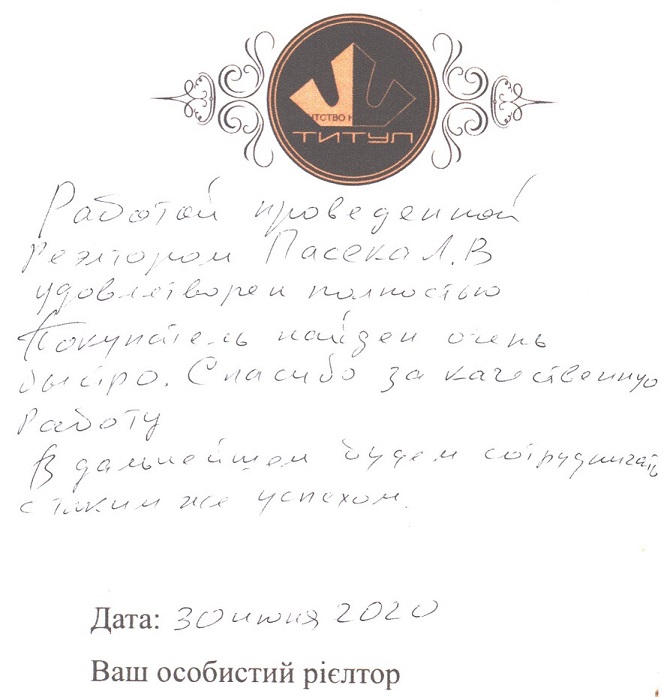 НТСТВО Н
ТИТУЛ
Работой проведенной
Реэлтором Пасека Л.В
удовлетворен полностью
Покупатель найден очень
быстро. Спасибо за качественную
работу
В дальнейшем будем сотрудничать
с таким же успехом.
Дата: 30 июня 2020
Ваш особистий рієлтор